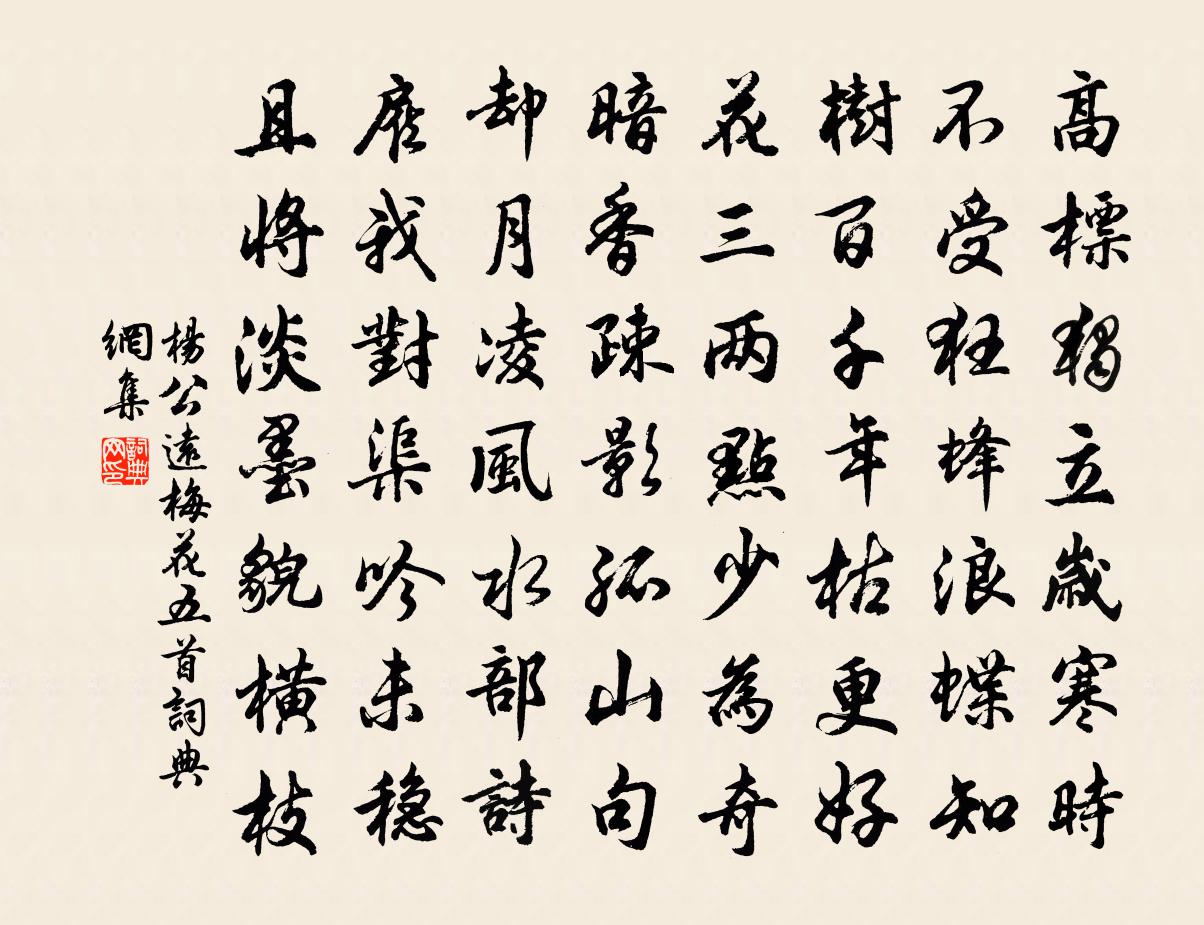 高標獨立歲寒時
不受狂蜂浪蝶知
樹百千年枯更好
花三兩點少為奇
暗香疎影孤山句
却月凌風水部詩
應我對渠吟未穩
且將淡墨貌橫枝
楊公遠梅花五首詞典
網集
詞典網印